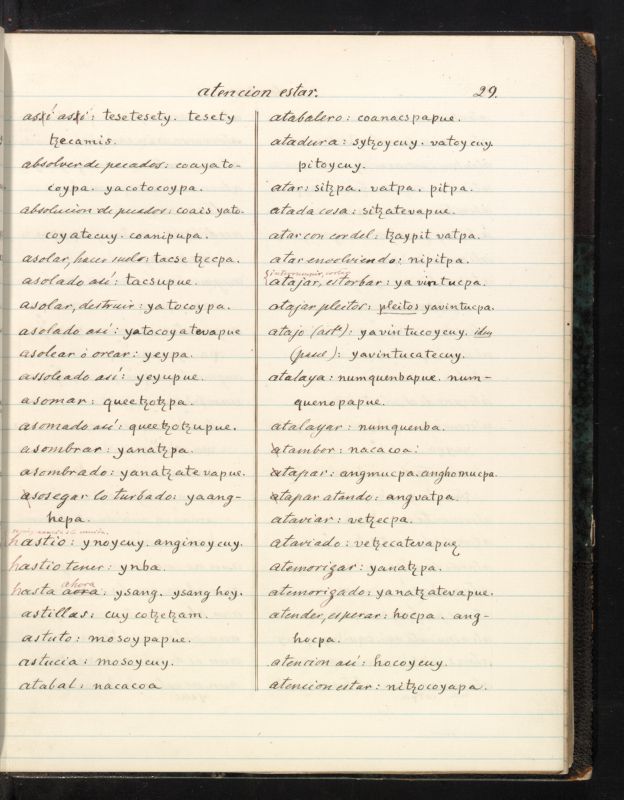 atencion estar.
29.
assí assí: tesetesety. tesety
tzecamis.
absolver de pecados: coayato-
coypa. yacotocoypa.
absolucion de pecados: coais yato.
coyatecuy. coanipupa.
asolar, hacer suelo: tacse tzecpa.
asolado así: tacsupue.
asolar, destruir: yatocoypa.
asolado así: yatocoyatevapue
asolear ò orear: yeypa.
assoleado así: yeyupue.
asomar: queetzotzpa.
asomado así: queetzotzupue.
asombrar: yanatzpa.
asombrado: yanatzatevapue.
asosegar lo turbado: yaang-
hepa.
hastio: ynoycuy. anginoycuy.
hastio tener: ynba.
ahora
hasta aora: ysang. ysang hoy.
astillas: cuy cotzetzam.
astuto: mosoypapue.
astucia: mosoycuy.
atabal: nacacoa
atabalero: coanacspapue.
atadura: sytzoycuy. vatoycuy.
pitoycuy.
atar: sitzpa. vatpa. pitpa.
atada cosa: sitzatevapue.
atar con cordel: tzaypit vatpa.
atar envolviendo: nipitpa.
interrumpir,
atajar, estorbar: yavintucpa.
atajar pleitos: pleitos yavintucpa.
atajo (act.º): yavintucoycuy. idm
yavintucatecuy.
atalaya: numquenbapue. num-
quenopapue.
atalayar: numquenba.
atambor: nacacoa:
atapar: angmucpa. anghomucpa.
atapar atando: angvatpa.
ataviar: vetzecpa.
ataviado: vetzecatevapue
atemorizar: yanatzpa.
atemorizado: yanatzatevapue.
atender, esperar: hocpa. ang-
hocpa.
atencion así: hocoycuy.
atencion estar: nitzocoyapa.